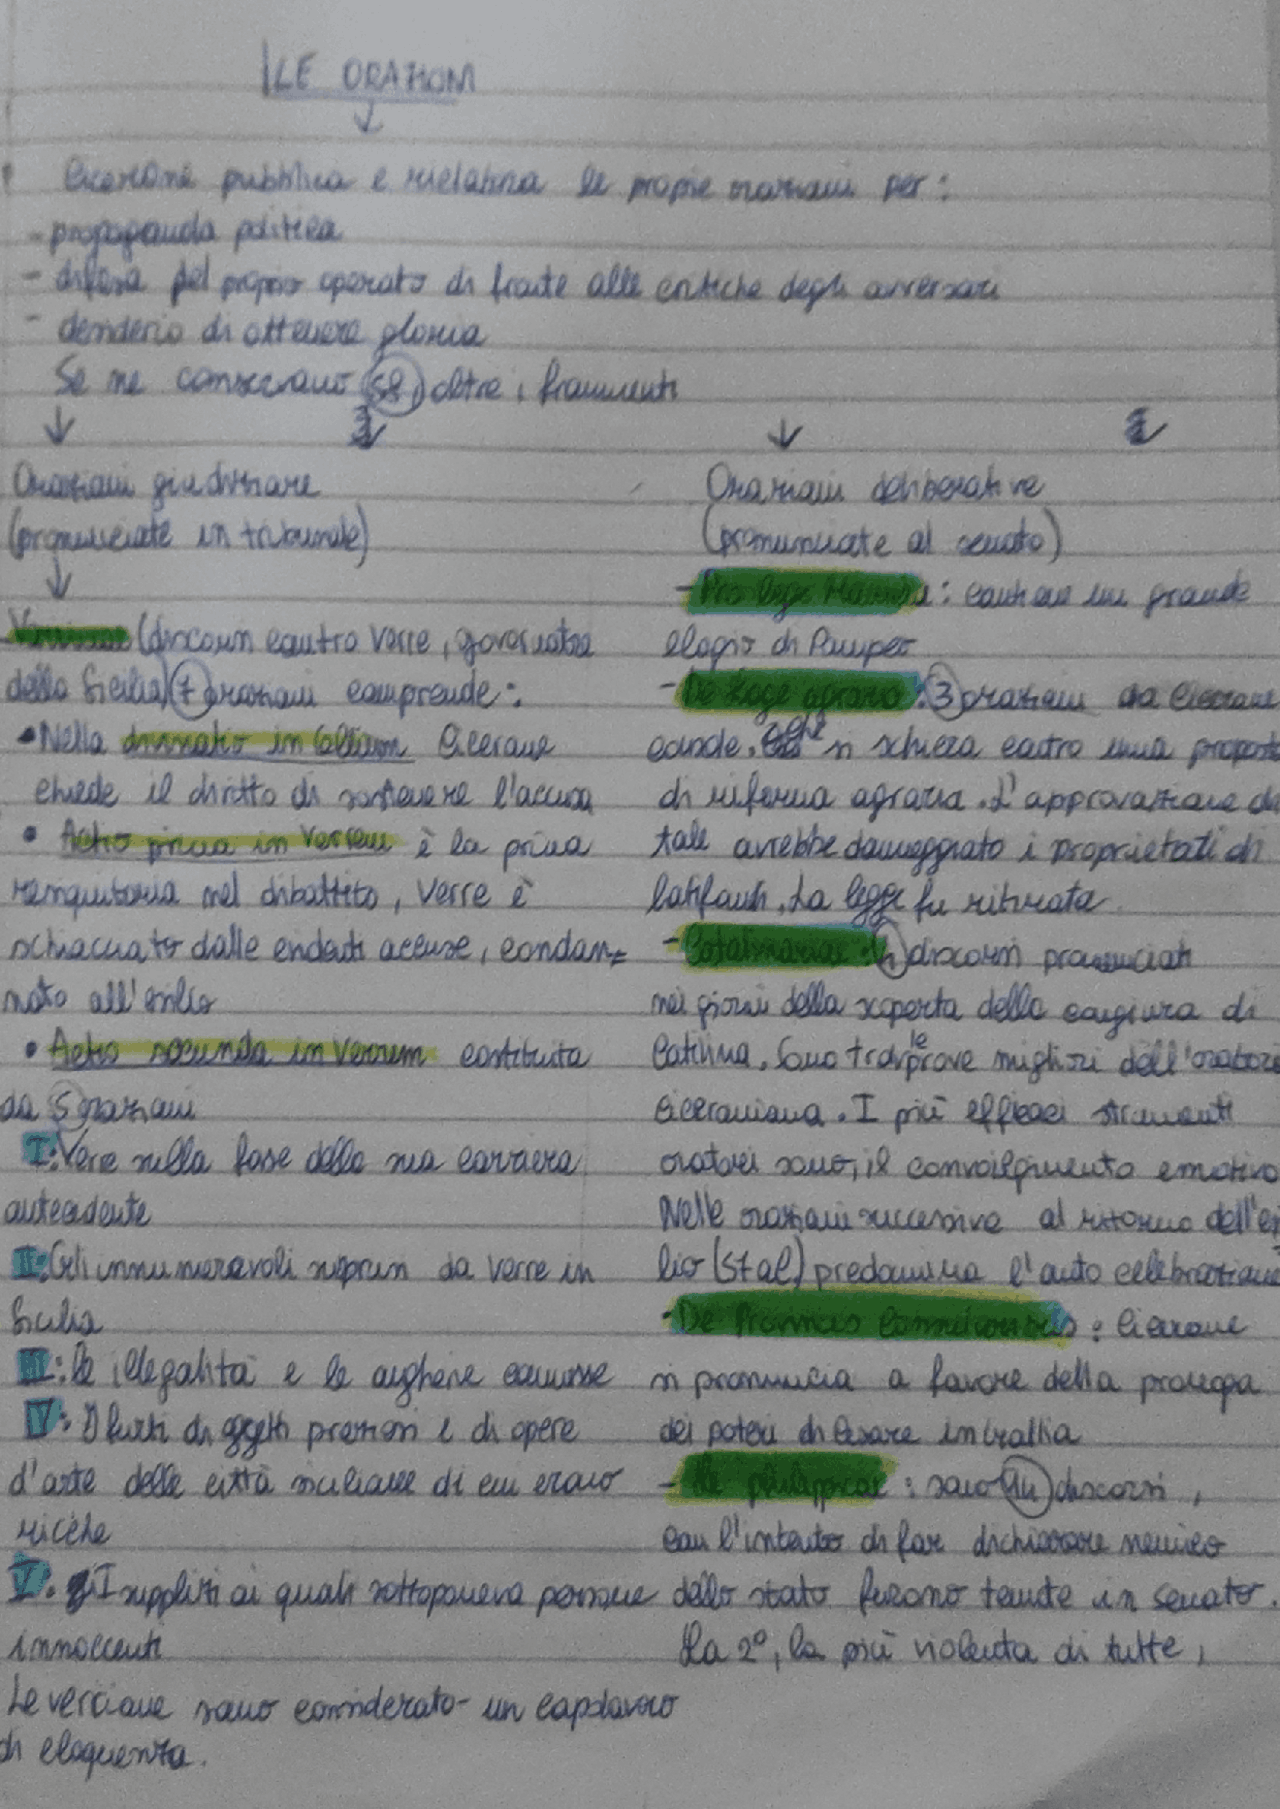 LE ORAZIONI
Cicerone pubblica e rielabora le proprie orazioni per:
- propaganda politica
- difesa del proprio operato di fronte alle critiche degli avversari
- desiderio di ottenere gloria
Se ne conservano 58, oltre i frammenti
Orazioni giudiziare
(pronunciate in tribunale)
Verrinae (discorsi contro Verre, governatore
della Sicilia) 7 orazioni comprende:
• Nella divinatio in Caecilium Cicerone
chiede il diritto di sostenere l'accusa
• Actio prima in Verrem è la prima
requisitoria nel dibattito, Verre è
schiacciato dalle evidenti accuse, condan=
nato all'esilio
• Actio secunda in Verrem costituita
da 5 orazioni
I: Verre nella fase della sua carriera
antecedente
II: Gli innumerevoli soprusi da Verre in
Sicilia
III: le illegalità e le angherie commesse
IV: I furti di oggetti preziosi e di opere
d'arte delle città siciliane di cui erano
ricche
V: I supplizi ai quali sottoponeva persone
innoccenti
Le verriane sono considerato un capolavoro
di eloquenza.
Orazioni deliberative
(pronunciate al senato)
- Pro lege Manilia: contiene un grande
elogio di Pompeo
- De lege agraria: 3 orazioni da Cicerone
console, che si schiera contro una proposta
di riforma agraria. L'approvazione di
tale avrebbe danneggiato i proprietati di
latifondi. La legge fu ritirata.
- Catilinariae: 4 discorsi pronunciati
nei giorni della scoperta della congiura di
Catilina. Sono tra le prove migliori dell'oratoria
ciceroniana. I più efficaci strumenti
oratori sono, il convolgimento emotivo
Nelle orazioni successive al ritorno dell'esi
lio (57 aC) predomina l'auto celebrazione
- De Provinciis Consularibus: Cicerone
si pronuncia a favore della proroga
dei poteri di Cesare in Gallia
- Le philippicae: sono 14 discorsi,
con l'intento di far dichiarare nemico
dello stato furono tenute in senato.
La 2°, la più violenta di tutte,